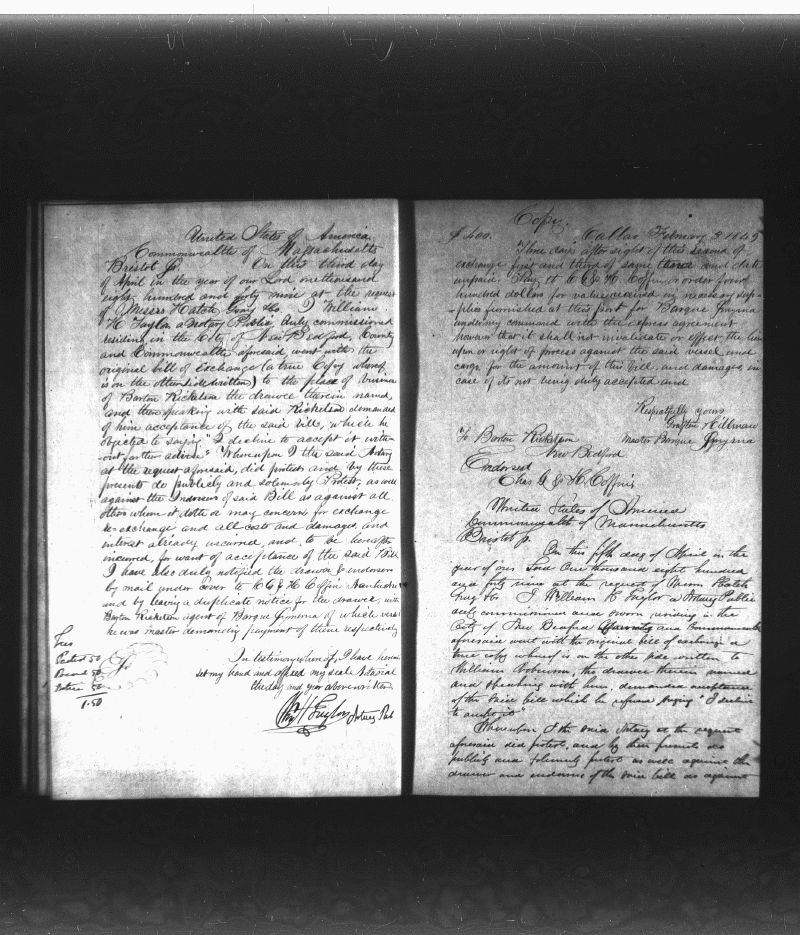 United States of America
Commonwealth of Massachusetts
Bristol ss. On this third day
of April in the year of our Lord one thousand
eight hundred and forty nine at the request
of Messrs Hatch Gray & Co I William
H Taylor a Notary Public duly commissioned
residing in the City of New Bedford, County
and Commonwealth aforesaid, went with the
original bill of Exchange (a true Copy whereof
is on the other side written) to the place of business
of Barton Ricketson the drawee therein named
and then speaking with said Ricketson demanded
of him acceptance of the said bill, which he
objected to saying "I decline to accept it with-
out further advice" Whereupon I the said Notary
at the request aforesaid, did protest and by these
presents do publicly and solemnly Protest, as well
against the Indorsers of said Bill as against all
others whom it doth or may concern for exchange
re-exchange and all costs and damages, and
interest already incurred, and to be hereafter
incurred, for want of acceptance of the said Bill
I have also duly notified the drawer & endorsers
by mail under cover to C G & H Coffin Nantucket
and by leaving a duplicate notice for the drawer, with
Barton Ricketson agent of Barque Smyrna of which vessel
he was master demanding payment of them respectively
Fees
Protest 50
Record 50
Notices 50
1.50
In testimony whereof, I have hereun
set my hand and affixed my seal Notarial
the day and year above written
Wm H Taylor Notary Pub
Copy
$400. Callao February 3 1849
Three days after sight of this second of
exchange first and third of same tenor and date
unpaid. Pay to C G & H Coffin or order four
hundred dollars for value received in necessary sup-
plies furnished at this port for Barque Smyrna
under my command with the express agreement
however that it shall not invalidate or affect the lien
upon or right of process against the said vessel and
cargo, for the amount of this bill, and damages, in
case of its not being duly accepted and
Respectfully yours
Grafton Hillman
To Barton Ricketson Master Barque Smyrna
New Bedford
Endorsed
Chas G & H. Coffin
United States of America
Commonwealth of Massachusetts
Bristol ss.
On this fifth day of April in the
year of our Lord One thousand eight hundred
and forty nine at the request of Hatch
Gray & Co. I William H Taylor a Notary Public
duly commissioned and sworn residing in the
City of New Bedford and Commonwealth
aforesaid went with the original bill of exchange a
true copy whereof is on the other side written to
William the drawee therein named
and speaking with him, demanded acceptance
of the said bill which he refused saying "I decline
to accept it"
Wherefore I the said Notary at the request
aforesaid did protest, and by these presents do
publicly and solemnly protest as well against the
drawer and endorsers of the said bill as against